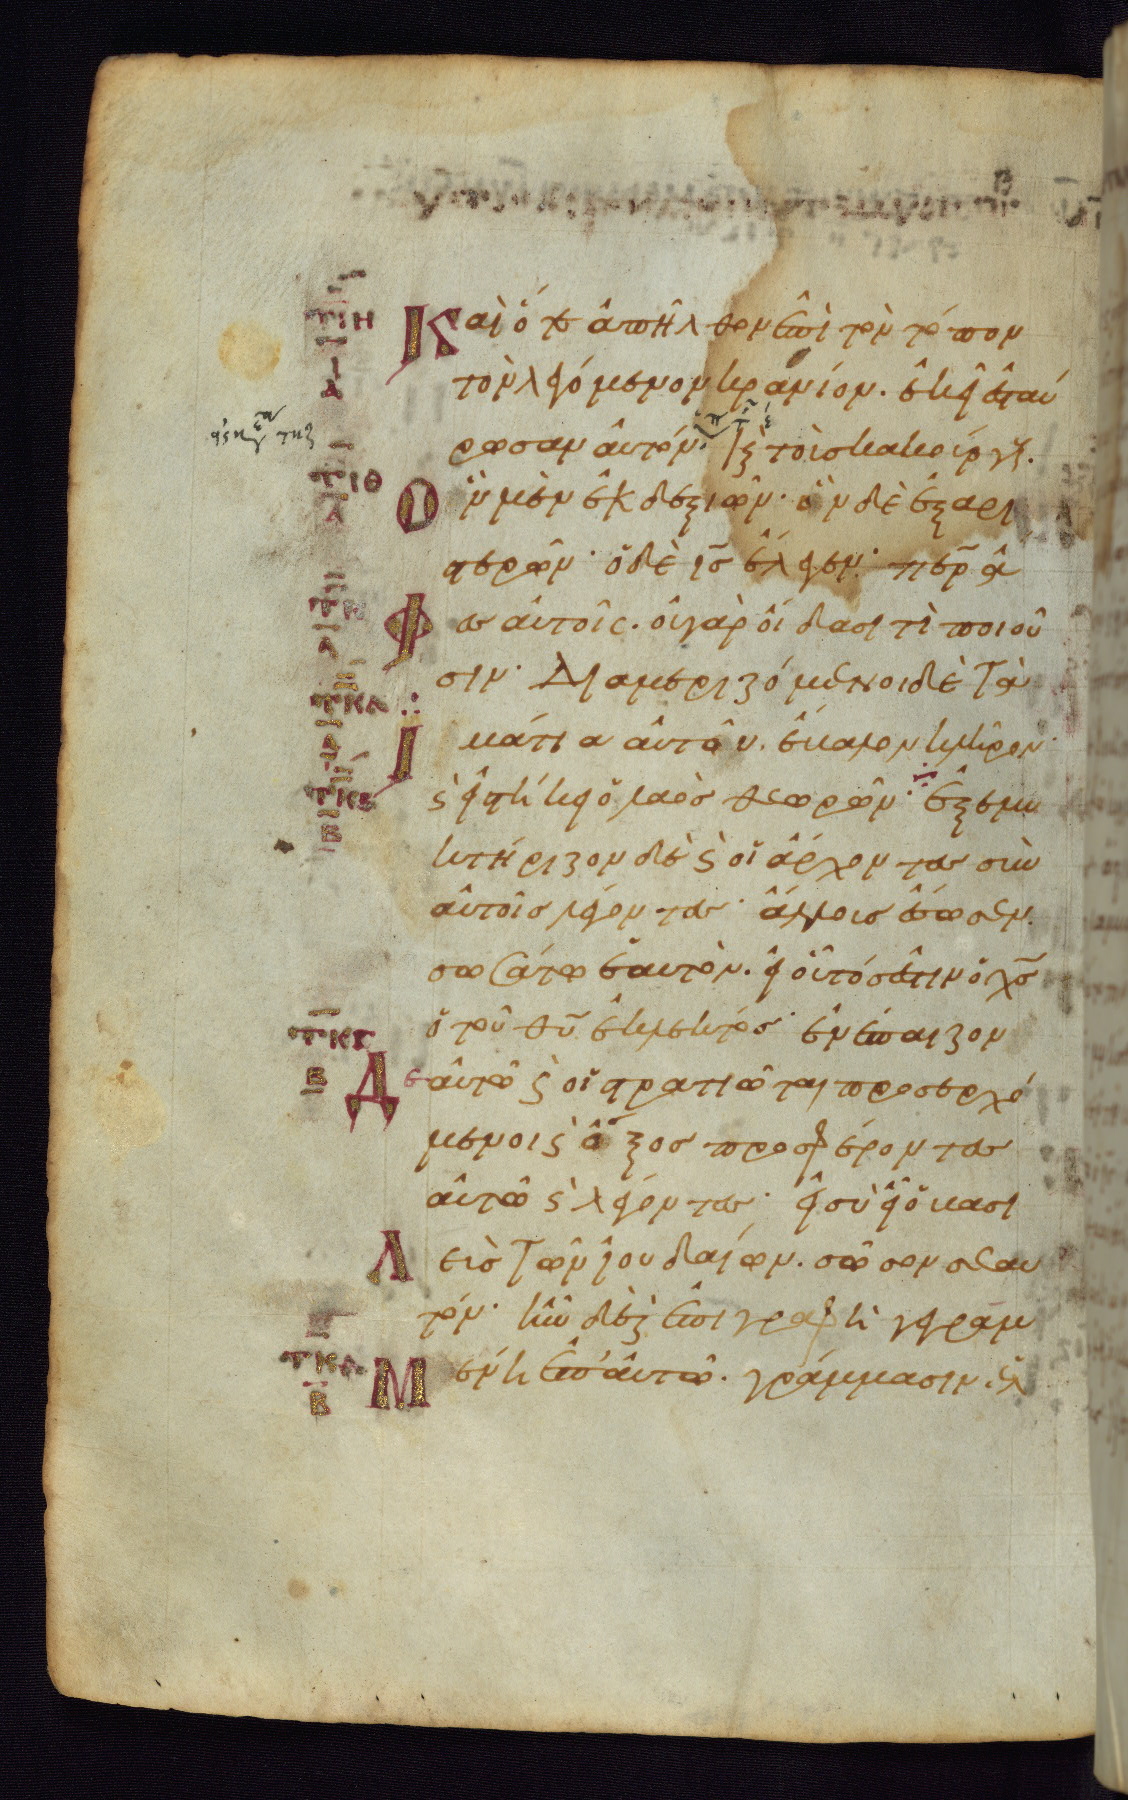 Καὶ ὅτε ἀπῆλθον ἐπὶ τὸν τόπον
τὸν λεγόμενον κρανίον. ἐκεῖ ἐσταύ
ρωσαν αὐτόν. καὶ τοὺς κακούργους.
Ὃν μὲν ἐκ δεξιῶν· ὃν δὲ ἐξ ἀρι
στερῶν· ὁ δὲ ις ἔλεγεν· περ ἄ
Φες αὐτοῖς. οὐ γὰρ οἴδασι τί ποιοῦ
σιν· Διαμεριζόμενοι δὲ τὰ
Ἱμάτια αὐτοῦ. ἔβαλον κλῆρον·
ϛ εἱστήκει ὁ λαὸς θεωρῶν· ἐξεμυ
κτήριζον δὲ ϛ οἱ ἄρχοντες σὺν
αὐτοῖς λέγοντες· ἄλλους ἔσωσεν.
σωσάτω ἑαυτὸν. εἰ οὗτός ἐστιν ὁ χς
ὁ τοῦ θυ ἐκλεκτός· ἐνέπαιζον
Δὲ αὐτῶ ϛ οἱ στρατιῶται προσερχό
μενοι ϛ ὄξος προσφέροντες
αὐτῶ ϛ λέγοντες· εἰ σὺ εἶ ὁ βασι
Λεὺς τῶν ἰουδαίων. σῶσον σεαυ
τόν· ἦν δὲ ϛ ἐπιγραφὴ γεγραμ
Μένη ἐπ' αὐτῶ. γράμμασιν ἑλ
ΤΙΗ
Α
ΤΙΘ
Α
ΤΚ
Α
ΤΚΑ
Α
ΤΚΒ
Β
ΤΚΓ
Β
ΤΚΔ
Β